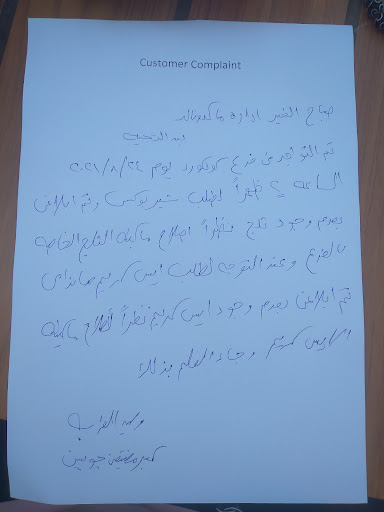 Customer Complaint
صباح الخير ادارة ماكدونالد
بعد التحية
تم التواجد في فرع كونكورد يوم ٢٠٢١/٨/٢٤
الساعة ٢ ظهراً لطلب شير بوكس وتم ابلاغي
بعدم وجود ثلج نظراً اصلاح ماكينة الثلج الخاصة
بالفرع وعند التوجه لطلب ايس كريم صانداي
تم ابلاغي بعدم وجود ايس كريم نظراً لاصلاح ماكينة
الايس كريم وجاء العلم بذلك